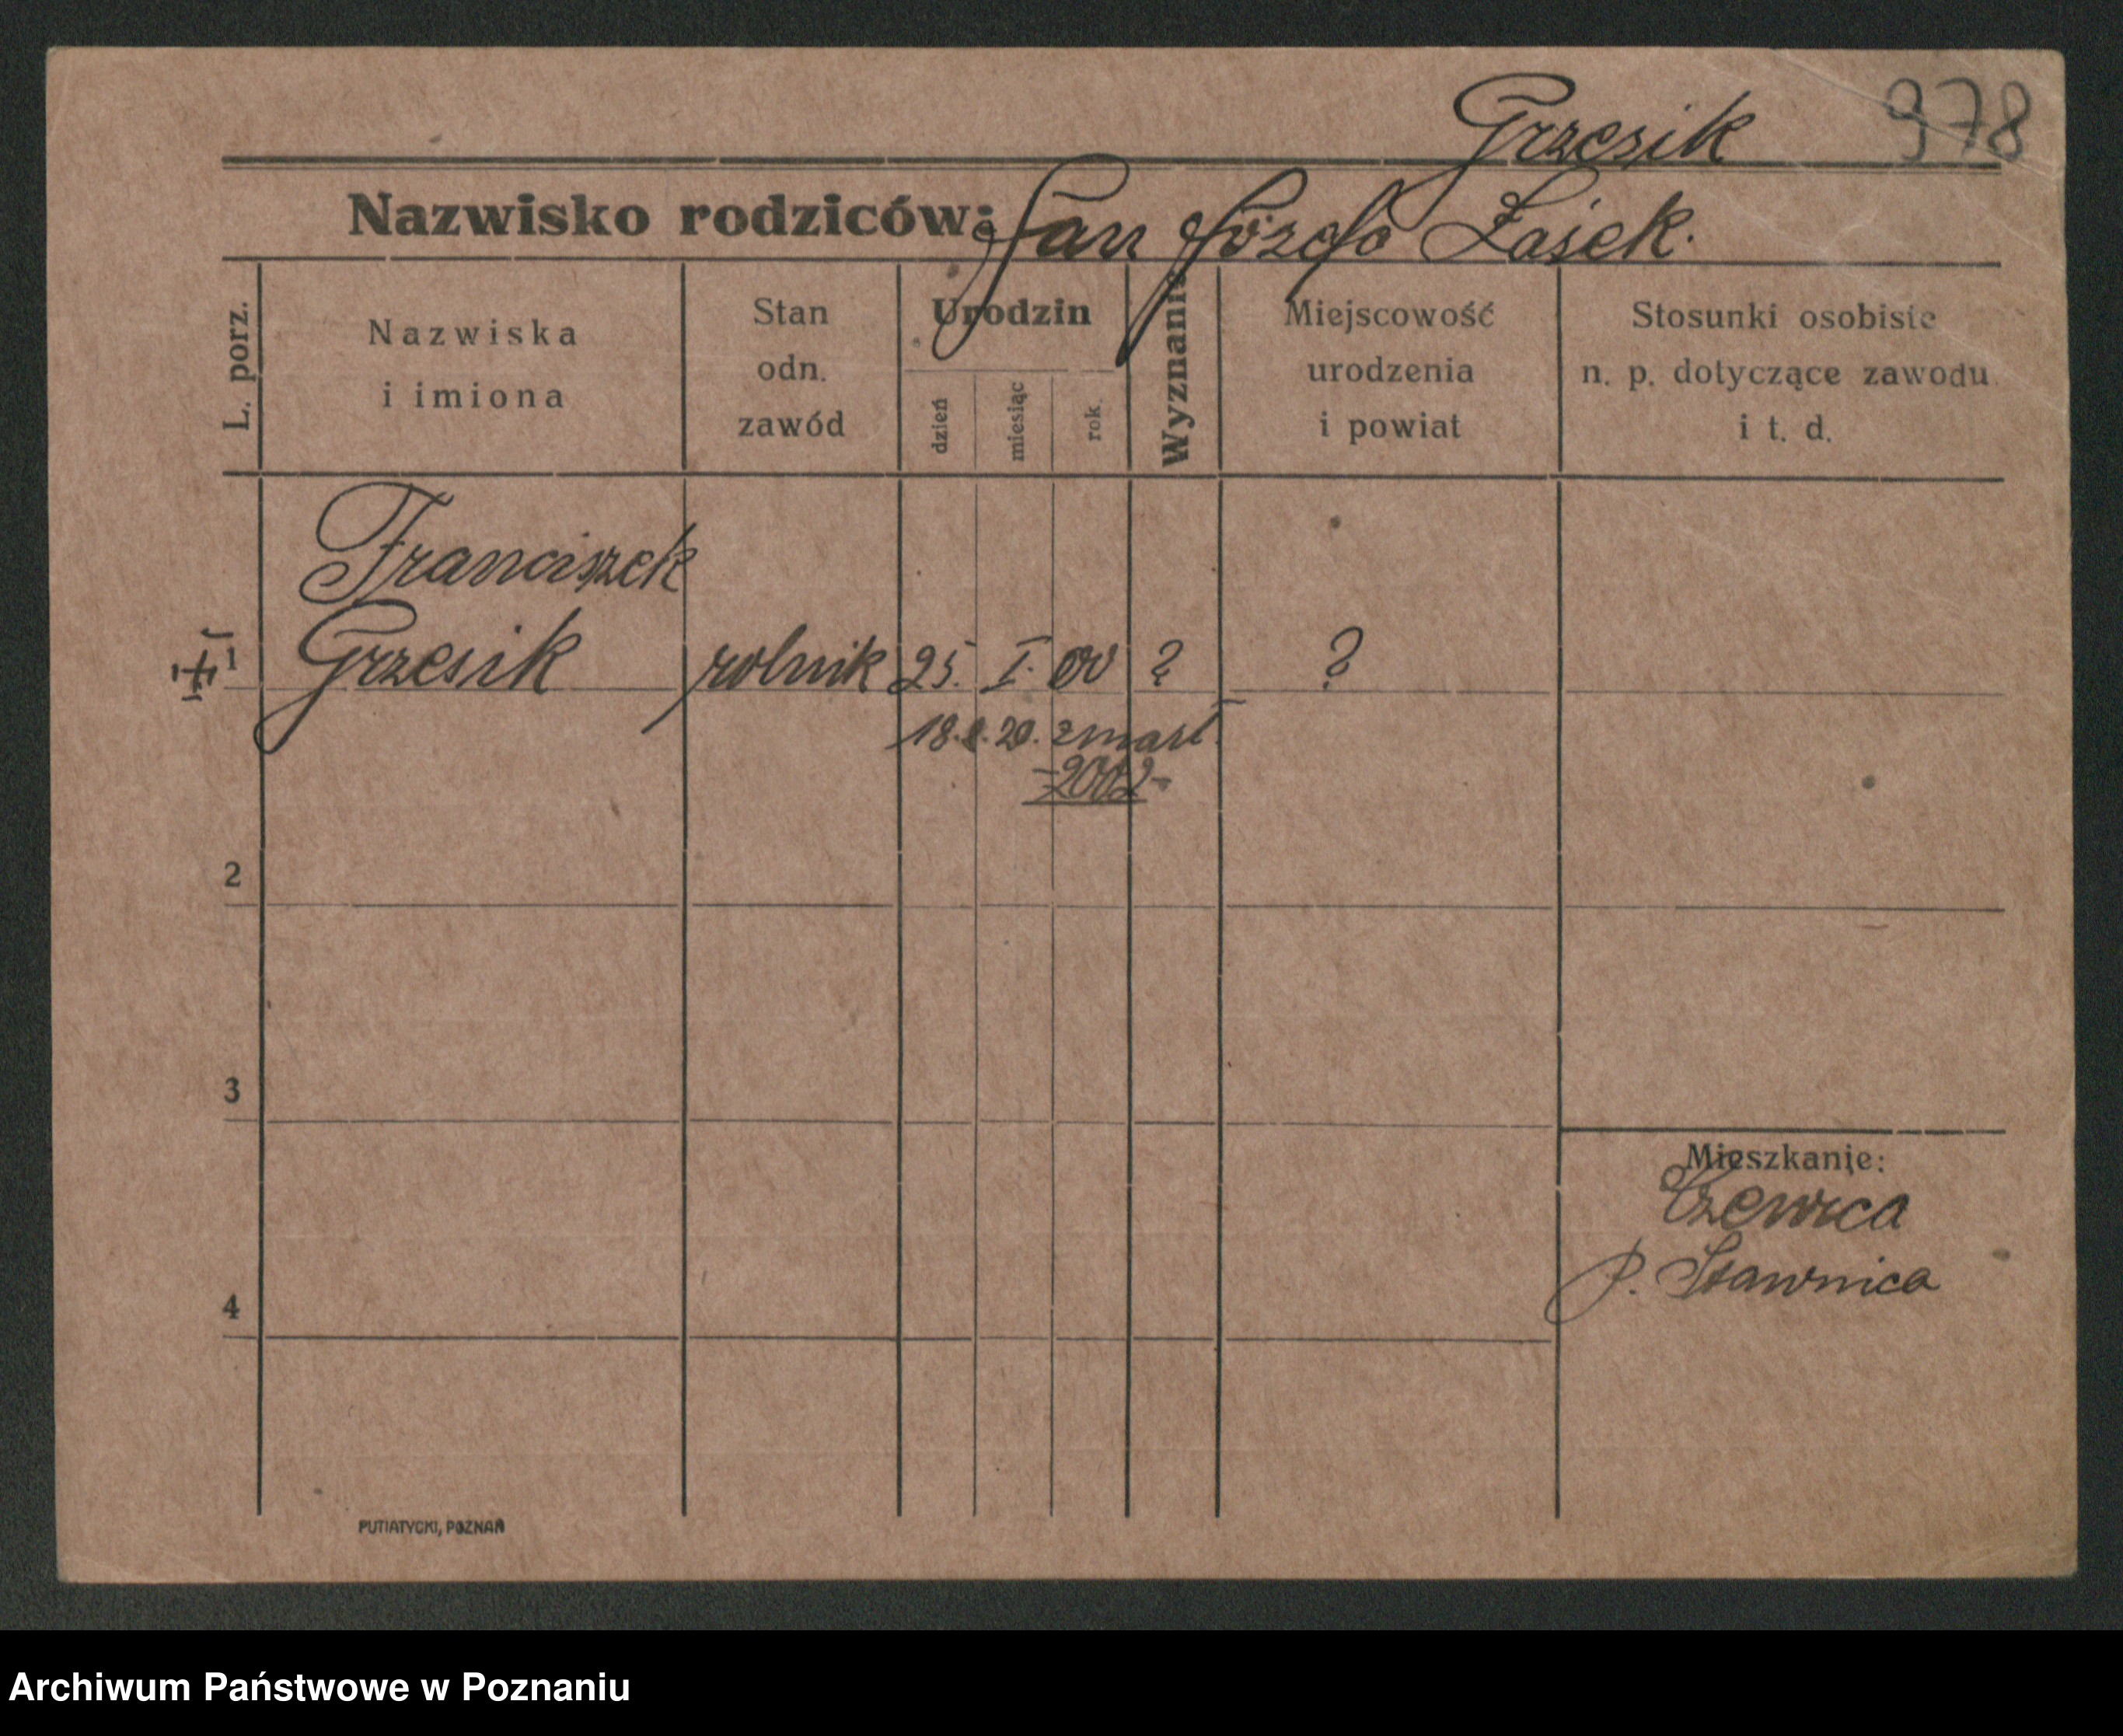 Grzesik 978
Nazwisko rodziców: Jan Józefa Łasek.
L. porz.
Nazwiska
i imiona
Stan
odn.
zawód
Urodzin
dzień
miesiąc
rok.
Wyznanie
Miejscowość
urodzenia
i powiat
Stosunki osobiste
n. p. dotyczące zawodu
i t. d.
Franciszek
1 Grzesik rolnik 25. I. 00 ? ?
20. zmarł
-2002-
2
3
Mieszkanie:
P. Sławnica
4
PUTIATYCKI, POZNAŃ
Archiwum Państwowe w Poznaniu